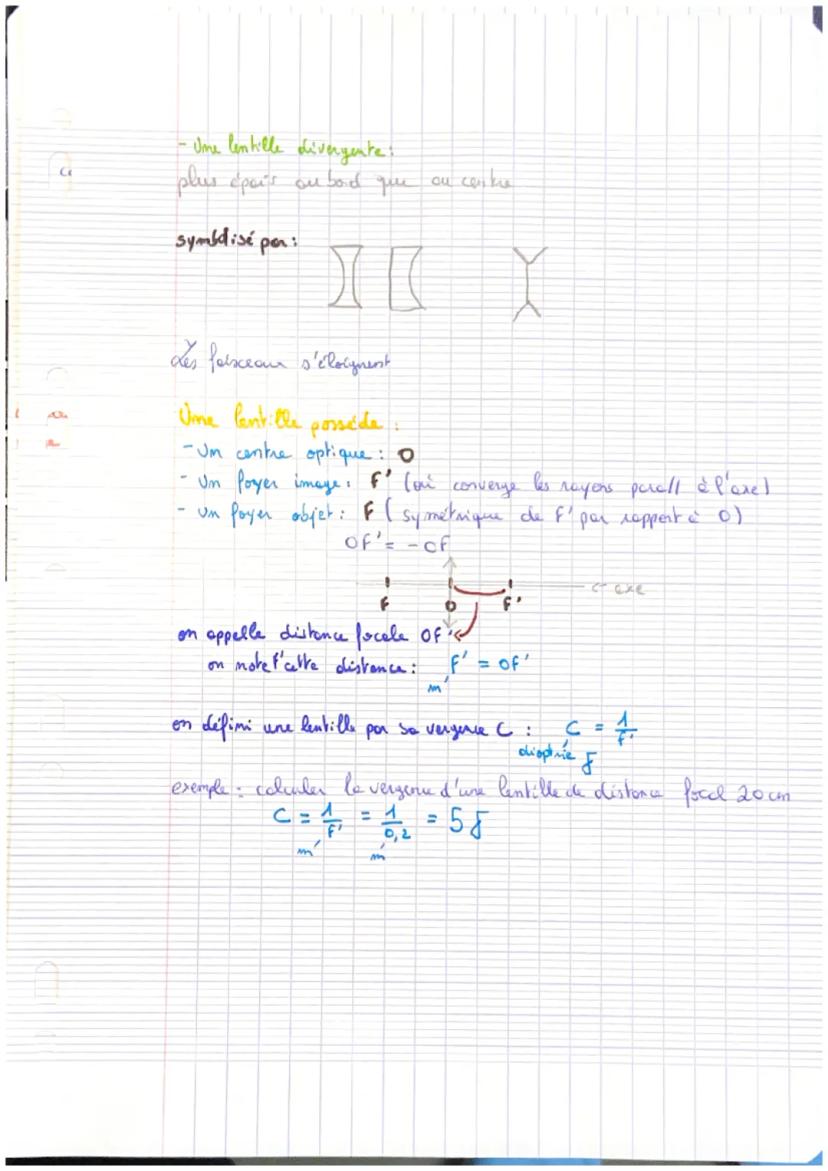 - Une lentille divergente :
plus épais au bord que au centre
symbolisé par :
Les faisceaux s'éloignent
Une lentille possède :
- Un centre optique : O
- Un foyer image : F' (où converge les rayons parall à l'axe)
- Un foyer objet : F ( symétrique de F' par rapport à O)
OF' = - OF
F O F' axe
on appelle distance focale OF'
on note cette distance : F' = OF'
m
on défini une lentille par sa vergence C : C = 1/F'
dioptrie δ
exemple : calculer la vergence d'une lentille de distance focal 20 cm
C = 1/F' = 1/0,2 = 5 δ
m m